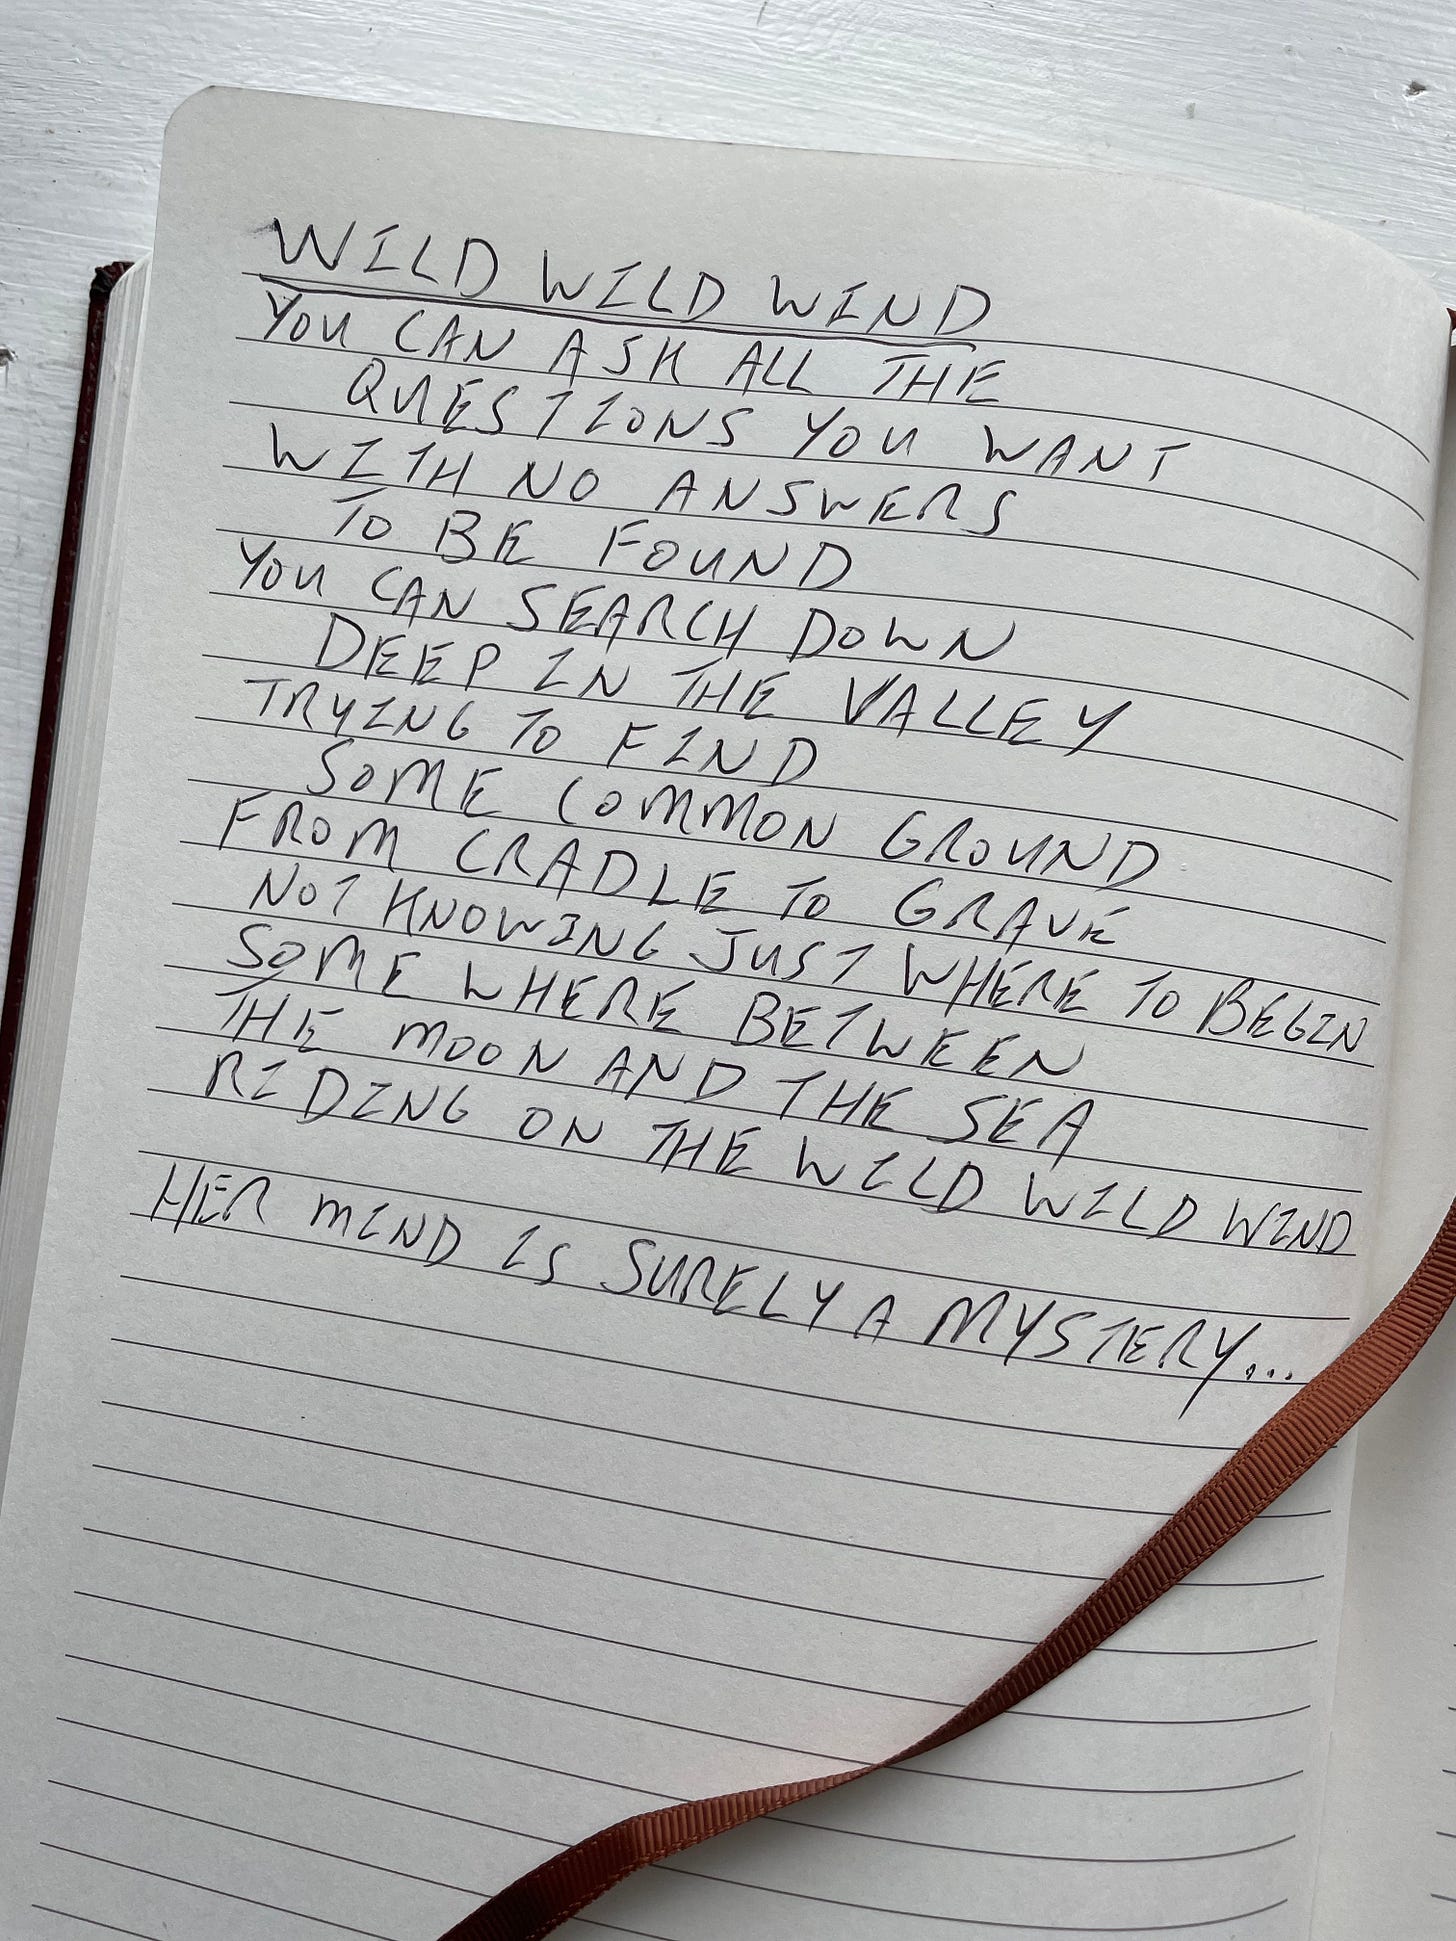 WILD WILD WIND
YOU CAN ASK ALL THE
QUESTIONS YOU WANT
WITH NO ANSWERS
TO BE FOUND
YOU CAN SEARCH DOWN
DEEP IN THE VALLEY
TRYING TO FIND
SOME COMMON GROUND
FROM CRADLE TO GRAVE
NOT KNOWING JUST WHERE TO BEGIN
SOME WHERE BETWEEN
THE MOON AND THE SEA
RIDING ON THE WILD WILD WIND
HER MIND IS SURELY A MYSTERY...